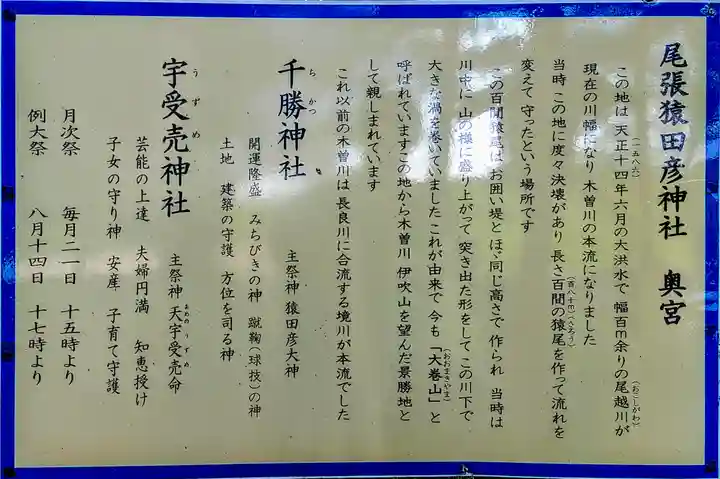 尾張猿田彦神社 奥宮
この地は 天正十四年(一五八六)六月の大洪水で 幅百m余りの尾越川(おこしがわ)が
現在の川幅になり 木曽川の本流になりました
当時 この地に度々決壊があり 長さ百間(百八十m)の猿尾(さるお)を作って流れを
変えて 守ったという場所です
この百間猿尾はお囲い堤と ほゞ同じ高さで 作られ 当時は
川中に 山の様に盛り上がって 突き出た形をして この川下で
大きな渦を巻いていました これが由来で 今も「大巻山(おおまきやま)」と
呼ばれています この地から木曽川 伊吹山を望んだ景勝地と
して親しまれています
これ以前の木曽川は 長良川に合流する境川が本流でした
千勝神社(ちかつ) 主祭神 猿田彦大神
開運隆盛 みちびきの神 蹴鞠(球技)の神
土地 建築の守護 方位を司る神
宇受売神社(うずめ) 主祭神 天宇受売命(あめのうずめ)
芸能の上達 夫婦円満 知恵授け
子女の守り神 安産 子育て守護
月次祭 毎月二一日 十五時より
例大祭 八月十四日 十七時より